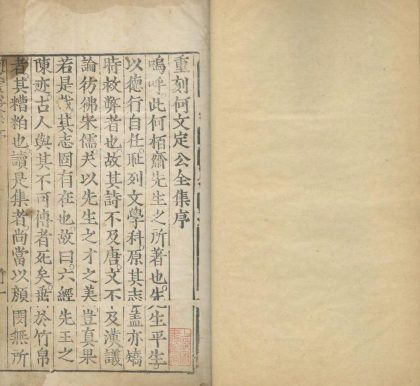 重刻何文定公全集序
嗚呼此何栢齋先生之所著也先生平生
以德行自任恥列文學科原其志蓋亦矯
時救弊者也故其詩不及唐文不及漢議
論彷彿宋儒夫以先生之才之美豈真果
若是哉其志固有在也故曰六經先王之
陳迹古人與其不可傳者死矣垂於竹帛
者其糟粕也讀是集者尚當以顏閔無所